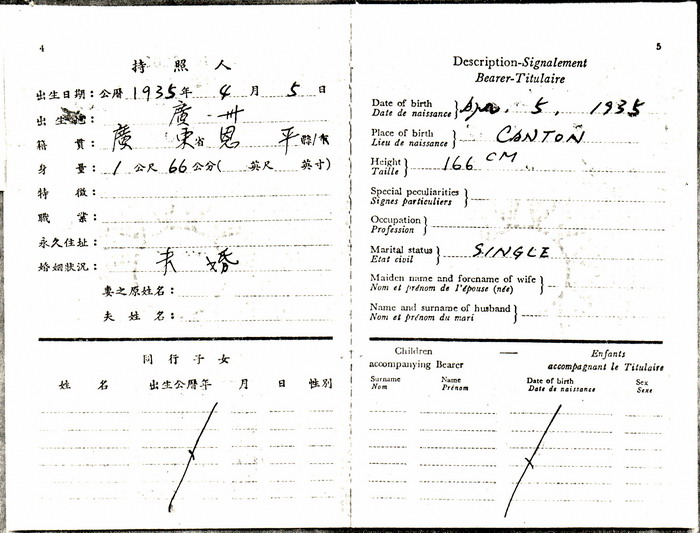 4
持照人
出生日期：公曆 1935 年 4 月 5 日
出生地： 廣州
籍貫： 廣東省 恩平 縣/市
身量： 1 公尺 66 公分( 英尺 英寸)
特徵：
職業：
永久住址：
婚姻狀況： 未婚
妻之原姓名：
夫姓名：
同行子女
姓名 出生公曆年 月 日 性別
5
Description-Signalement
Bearer-Titulaire
Date of birth
Date de naissance } Apr. 5, 1935
Place of birth
Lieu de naissance } CANTON
Height
Taille } 166 CM
Special peculiarities
Signes particuliers }
Occupation
Profession }
Marital status
Etat civil } SINGLE
Maiden name and forename of wife
Nom et prénom de l'épouse (née) }
Name and surname of husband
Nom et prénom du mari }
Children — Enfants
accompanying Bearer accompagnant le Titulaire
Surname Name Date of birth Sex
Nom Prénom Date de naissance Sexe